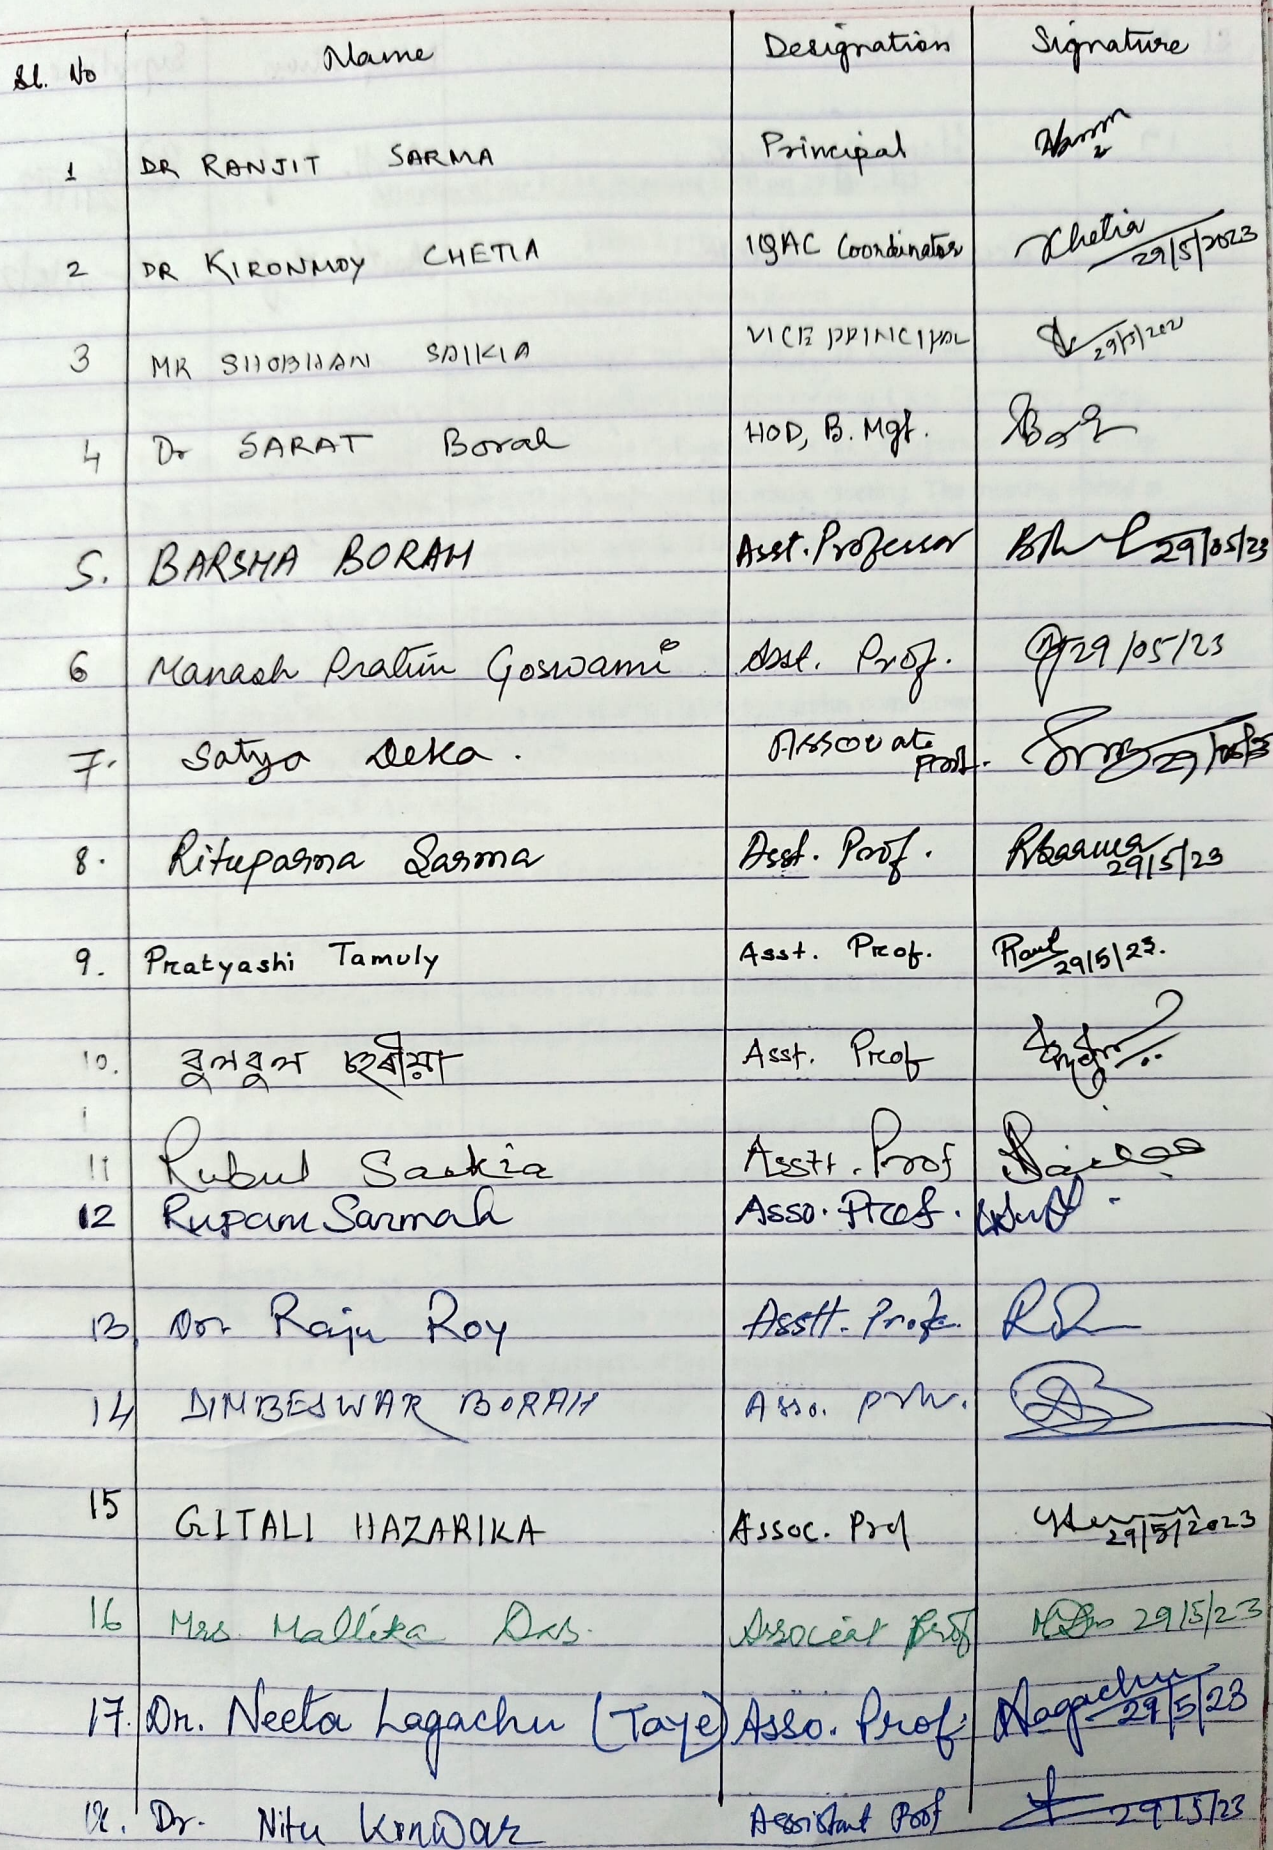 Sl. No Name Designation Signature
1 DR RANJIT SARMA Principal
2 DR KIRONMOY CHETIA IQAC Coordinator Chetia 29/5/2023
3 MR SHOBHAN SAIKIA VICE PRINCIPAL 29/5/202
4 Dr SARAT Borah HOD, B. Mgt.
5. BARSHA BORAH Asst. Professor 29/05/23
6 Manash Pratim Goswami Asst. Prof. 29/05/23
7. Satya Deka. Associate Prof. 29/05/23
8. Rituparna Sarma Asst. Prof. RSarma 29/5/23
9. Pratyashi Tamuly Asst. Prof. 29/5/23.
10. বুলবুল চহৰীয়া Asst. Prof
11 Rubul Saikia Asstt. Prof Saikia
12 Rupam Sarmah Asso. Prof.
13 Dr. Raju Roy Asstt. Prof. RR
14 DIMBESWAR BORAH Asso. Prof. DB
15 GITALI HAZARIKA Assoc. Prof 29/5/2023
16 Mrs. Mallika Das. Associat Prof MDas 29/5/23
17. Dr. Neeta Lagachu (Taye) Asso. Prof. Lagachu 29/5/23
18. Dr. Nitu Konwar Assistant Prof 29/5/23